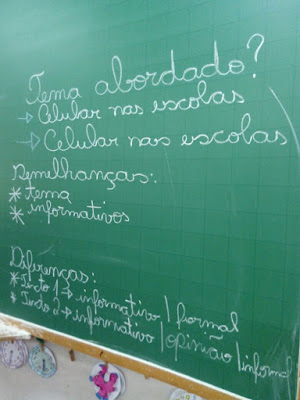 Tema abordado?
→ Celular nas escolas
→ Celular nas escolas
Semelhanças:
* tema
* informativos
Diferenças:
* Texto 1 → informativo / formal
* Texto 2 → informativo / opinião / informal